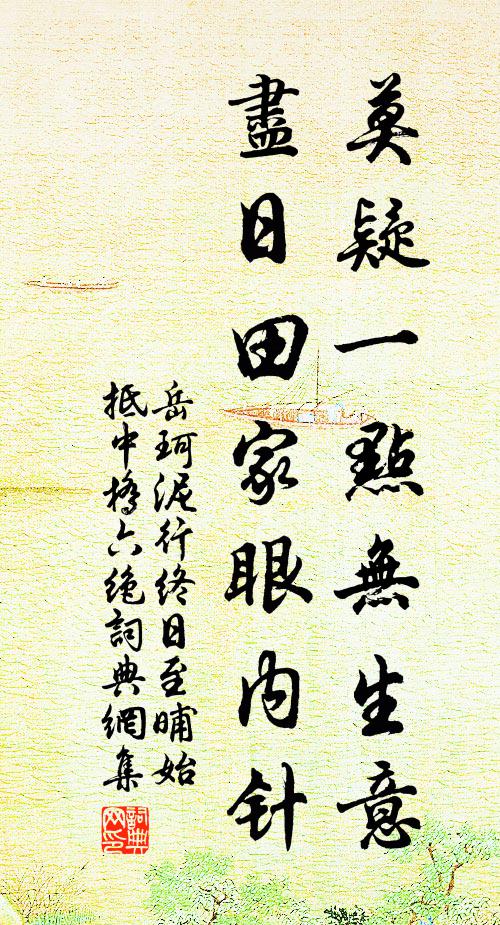 莫疑一點無生意
盡日田家眼内针
岳珂泥行终日至晡始
抵中橋六绝詞典網集
詞典
网印